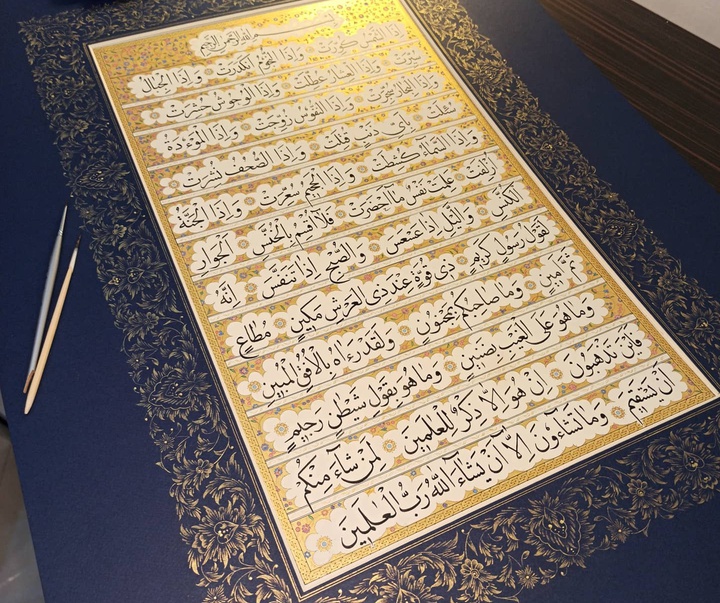 بِسْمِ اللهِ الرَّحْمٰنِ الرَّحِيمِ
إِذَا الشَّمْسُ كُوِّرَتْ وَإِذَا النُّجُومُ انْكَدَرَتْ وَإِذَا الْجِبَالُ
سُيِّرَتْ وَإِذَا الْعِشَارُ عُطِّلَتْ وَإِذَا الْوُحُوشُ حُشِرَتْ
وَإِذَا الْبِحَارُ سُجِّرَتْ وَإِذَا النُّفُوسُ زُوِّجَتْ وَإِذَا الْمَوْءُدَةُ
سُئِلَتْ بِأَيِّ ذَنْبٍ قُتِلَتْ وَإِذَا الصُّحُفُ نُشِرَتْ
وَإِذَا السَّمَاءُ كُشِطَتْ وَإِذَا الْجَحِيمُ سُعِّرَتْ وَإِذَا الْجَنَّةُ
أُزْلِفَتْ عَلِمَتْ نَفْسٌ مَا أَحْضَرَتْ فَلَا أُقْسِمُ بِالْخُنَّسِ الْجَوَارِ
الْكُنَّسِ وَالَّيْلِ إِذَا عَسْعَسَ وَالصُّبْحِ إِذَا تَنَفَّسَ إِنَّهُ
لَقَوْلُ رَسُولٍ كَرِيمٍ ذِي قُوَّةٍ عِنْدَ ذِي الْعَرْشِ مَكِينٍ مُطَاعٍ
ثَمَّ أَمِينٍ وَمَا صَاحِبُكُمْ بِمَجْنُونٍ وَلَقَدْ رَءَاهُ بِالْأُفُقِ الْمُبِينِ
وَمَا هُوَ عَلَى الْغَيْبِ بِضَنِينٍ وَمَا هُوَ بِقَوْلِ شَيْطٰنٍ رَجِيمٍ
فَأَيْنَ تَذْهَبُونَ إِنْ هُوَ إِلَّا ذِكْرٌ لِلْعٰلَمِينَ لِمَنْ شَاءَ مِنْكُمْ
أَنْ يَسْتَقِيمَ وَمَا تَشَاءُونَ إِلَّا أَنْ يَشَاءَ اللهُ رَبُّ الْعٰلَمِينَ